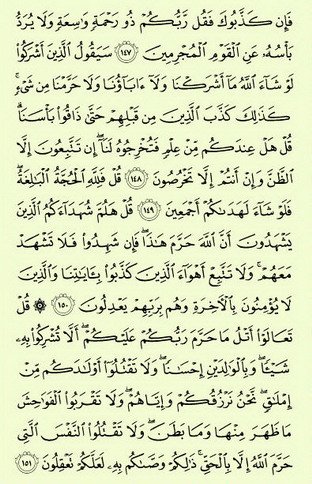 فَإِن كَذَّبُوكَ فَقُل رَّبُّكُمْ ذُو رَحْمَةٍ وَاسِعَةٍ وَلَا يُرَدُّ
بَأْسُهُۥ عَنِ ٱلْقَوْمِ ٱلْمُجْرِمِينَ ١٤٧ سَيَقُولُ ٱلَّذِينَ أَشْرَكُوا۟
لَوْ شَآءَ ٱللَّهُ مَآ أَشْرَكْنَا وَلَآ ءَابَآؤُنَا وَلَا حَرَّمْنَا مِن شَىْءٍ ۚ
كَذَٰلِكَ كَذَّبَ ٱلَّذِينَ مِن قَبْلِهِمْ حَتَّىٰ ذَاقُوا۟ بَأْسَنَا ۗ
قُلْ هَلْ عِندَكُم مِّنْ عِلْمٍ فَتُخْرِجُوهُ لَنَآ ۖ إِن تَتَّبِعُونَ إِلَّا
ٱلظَّنَّ وَإِنْ أَنتُمْ إِلَّا تَخْرُصُونَ ١٤٨ قُلْ فَلِلَّهِ ٱلْحُجَّةُ ٱلْبَٰلِغَةُ ۖ
فَلَوْ شَآءَ لَهَدَىٰكُمْ أَجْمَعِينَ ١٤٩ قُلْ هَلُمَّ شُهَدَآءَكُمُ ٱلَّذِينَ
يَشْهَدُونَ أَنَّ ٱللَّهَ حَرَّمَ هَٰذَا ۖ فَإِن شَهِدُوا۟ فَلَا تَشْهَدْ
مَعَهُمْ ۚ وَلَا تَتَّبِعْ أَهْوَآءَ ٱلَّذِينَ كَذَّبُوا۟ بِـَٔايَٰتِنَا وَٱلَّذِينَ
لَا يُؤْمِنُونَ بِٱلْـَٔاخِرَةِ وَهُم بِرَبِّهِمْ يَعْدِلُونَ ١٥٠ ۞ قُلْ
تَعَالَوْا۟ أَتْلُ مَا حَرَّمَ رَبُّكُمْ عَلَيْكُمْ ۖ أَلَّا تُشْرِكُوا۟ بِهِۦ
شَيْـًٔا ۖ وَبِٱلْوَٰلِدَيْنِ إِحْسَٰنًا ۖ وَلَا تَقْتُلُوٓا۟ أَوْلَٰدَكُم مِّنْ
إِمْلَٰقٍ ۖ نَّحْنُ نَرْزُقُكُمْ وَإِيَّاهُمْ ۖ وَلَا تَقْرَبُوا۟ ٱلْفَوَٰحِشَ
مَا ظَهَرَ مِنْهَا وَمَا بَطَنَ ۖ وَلَا تَقْتُلُوا۟ ٱلنَّفْسَ ٱلَّتِى
حَرَّمَ ٱللَّهُ إِلَّا بِٱلْحَقِّ ۚ ذَٰلِكُمْ وَصَّىٰكُم بِهِۦ لَعَلَّكُمْ تَعْقِلُونَ ١٥١